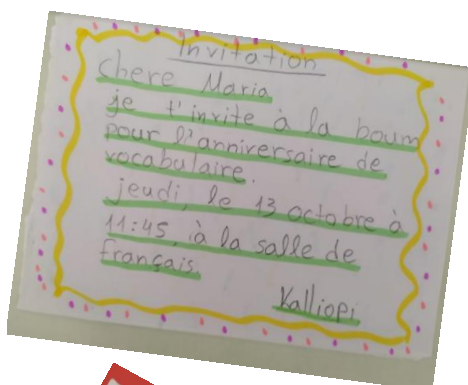 Invitation
chere Maria
je t'invite à la boum
pour l'anniversaire de
vocabulaire.
jeudi, le 13 octobre à
11:45, à la salle de
français.
Kalliopi